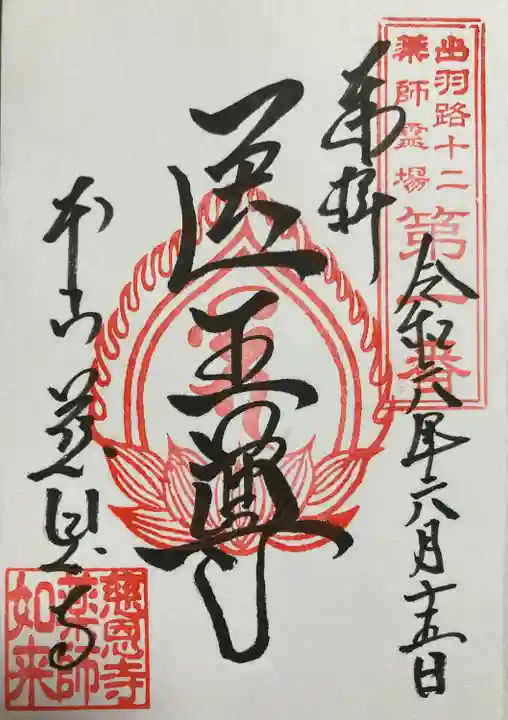 出羽路十二
薬師霊場
第一番
令和六年六月十五日
奉拝
医王尊
本山慈恩寺
慈恩寺
薬師
如来